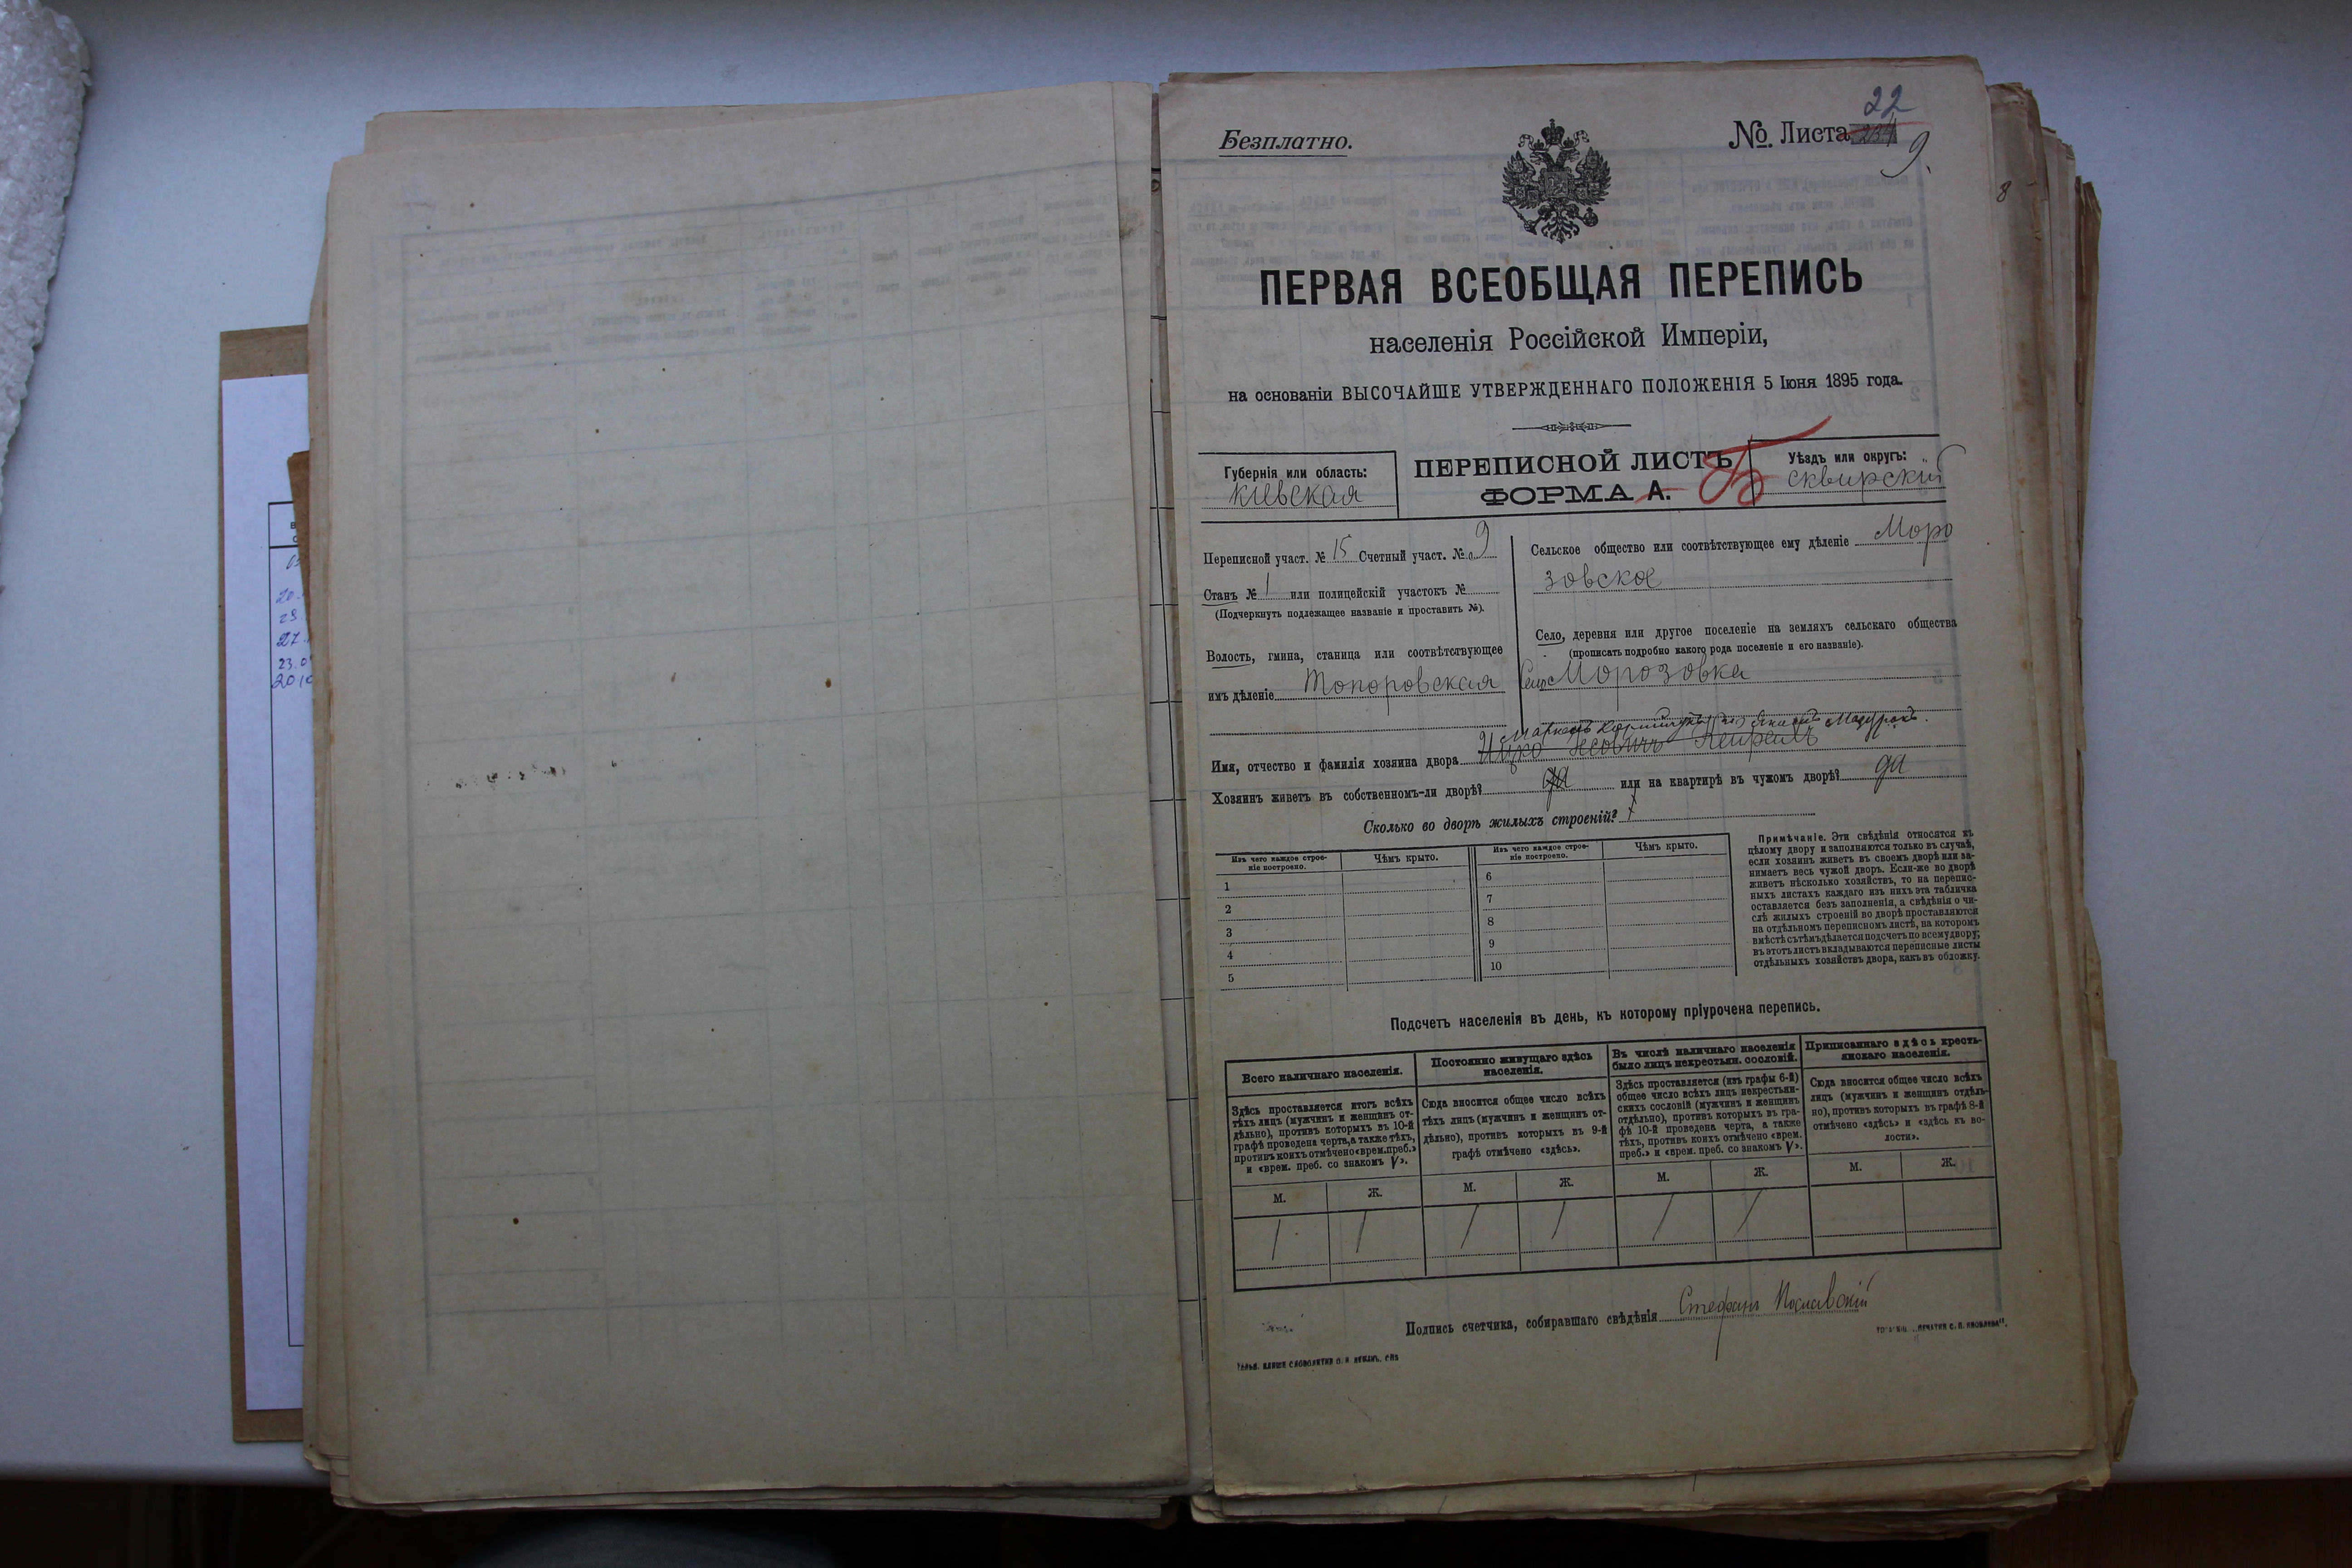 22
Безплатно.
№. Листа 234
9.
8
ПЕРВАЯ ВСЕОБЩАЯ ПЕРЕПИСЬ
населенія Россійской Имперіи,
на основаніи ВЫСОЧАЙШЕ УТВЕРЖДЕННАГО ПОЛОЖЕНІЯ 5 Іюня 1895 года.
Губернія или область:
Кіевская
ПЕРЕПИСНОЙ ЛИСТЪ
ФОРМА А. Б
Уѣздъ или округъ:
Сквирскій
Переписной участ. № 15 Счетный участ. № 9
Станъ № 1 или полицейскій участокъ №
(Подчеркнуть подлежащее названіе и проставить №).
Волость, гмина, станица или соотвѣтствующее
имъ дѣленіе Топоровская
Сельское общество или соотвѣтствующее ему дѣленіе Моро
зовское
Село, деревня или другое поселеніе на земляхъ сельскаго общества
(прописать подробно какого рода поселеніе и его названіе).
Село Морозовка
Имя, отчество и фамилія хозяина двора Ицко
Хозяинъ живетъ въ собственномъ-ли дворѣ? да или на квартирѣ въ чужомъ дворѣ? да
Сколько во дворѣ жилыхъ строеній? 1
Изъ чего каждое строе-
ніе построено.
Чѣмъ крыто.
Изъ чего каждое строе-
ніе построено.
Чѣмъ крыто.
1
2
3
4
5
6
7
8
9
10
Примѣчаніе. Эти свѣдѣнія относятся къ
цѣлому двору и заполняются только въ случаѣ,
если хозяинъ живетъ въ своемъ дворѣ или за-
нимаетъ весь чужой дворъ. Если-же во дворѣ
живетъ нѣсколько хозяйствъ, то на перепис-
ныхъ листахъ каждаго изъ нихъ эта табличка
оставляется безъ заполненія, а свѣдѣнія о чи-
слѣ жилыхъ строеній во дворѣ проставляются
на отдѣльномъ переписномъ листѣ, на которомъ
вмѣстѣ съ тѣмъ дѣлается подсчетъ по всему двору;
въ этотъ листъ вкладываются переписные листы
отдѣльныхъ хозяйствъ двора, какъ въ обложку.
Подсчетъ населенія въ день, къ которому пріурочена перепись.
Всего наличнаго населенія.
Здѣсь проставляется итогъ всѣхъ
тѣхъ лицъ (мужчинъ и женщинъ от-
дѣльно), противъ которыхъ въ 10-й
графѣ проведена черта, а также тѣхъ,
противъ коихъ отмѣчено «врем. преб.»
и «врем. преб. со знакомъ V».
Постоянно живущаго здѣсь
населенія.
Сюда вносится общее число всѣхъ
тѣхъ лицъ (мужчинъ и женщинъ от-
дѣльно), противъ которыхъ въ 9-й
графѣ отмѣчено «здѣсь».
Въ числѣ наличнаго населенія
было лицъ некрестьян. сословій.
Здѣсь проставляется (изъ графы 6-й)
общее число всѣхъ лицъ некрестьян-
скихъ сословій (мужчинъ и женщинъ
отдѣльно), противъ которыхъ въ гра-
фѣ 10-й проведена черта, а также
тѣхъ, противъ коихъ отмѣчено «врем.
преб.» и «врем. преб. со знакомъ V».
Приписаннаго здѣсь кресть-
янскаго населенія.
Сюда вносится общее число всѣхъ
лицъ (мужчинъ и женщинъ отдѣль-
но), противъ которыхъ въ графѣ 8-й
отмѣчено «здѣсь» и «здѣсь къ во-
лости».
М. Ж. М. Ж. М. Ж. М. Ж.
1 1 1 1 1 1
Подпись счетчика, собиравшаго свѣдѣнія Стефанъ